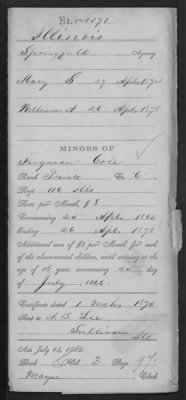 Illinois
Springfield Agency
Mary E 27 Apl. 1874
William A 20 Apl. 1878
MINORS OF
Ferguson Cole
Rank Private Co. "C"
Regt 116 Ills
Rate per Month, $ 8
Commencing 20 April
Ending 20 April 1878
Additional sum of $2 per Month for each
of the abovenamed children, until arriving at the
age of 16 years, commencing day
of July 1866
Certificate dated 1 1870
Sent to A. B. Lee
Sullivan
Ills
Act July 14, 1862.
Book Vol 2 Page 97
Clerk.